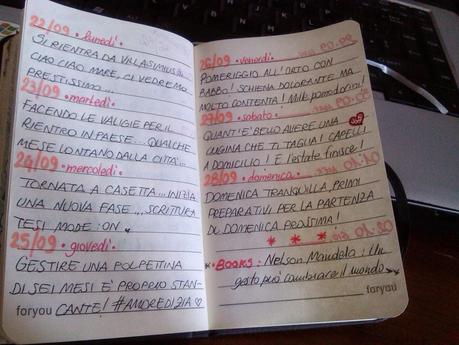 22/09 • lunedì •
SI RIENTRA DA VILLASIMIUS
CIAO CIAO MARE, CI VEDREMO
PRESTISSIMO...
23/09 • martedì •
FACENDO LE VALIGIE PER IL
RIENTRO IN PAESE... QUALCHE
MESE LONTANO DALLA CITTÀ...
24/09 • mercoledì •
TORNATA A CASETTA... INIZIA
UNA NUOVA FASE... SCRITTURA
TESI MODE: ON
25/09 • giovedì •
GESTIRE UNA POLPETTINA
DI SEI MESI E' PROPRIO STAN-
CANTE! #AMOREDIZIA ♡
foryou
26/09 • venerdì •
POMERIGGIO ALL'ORTO CON
BABBO! SCHIENA DOLORANTE MA
MOLTO CONTENTA! Mille pomodorini!
27/09 • sabato •
QUANT'E' BELLO AVERE UNA
CUGINA CHE TI TAGLIA I CAPELLI
A DOMICILIO! E l'estate finisce!
28/09 • domenica •
DOMENICA TRANQUILLA, PRIMI
PREPARATIVI PER LA PARTENZA
DI DOMENICA PROSSIMA!
* * *
• BOOKS: Nelson Mandela: Un
gesto può cambiare il mondo
foryou